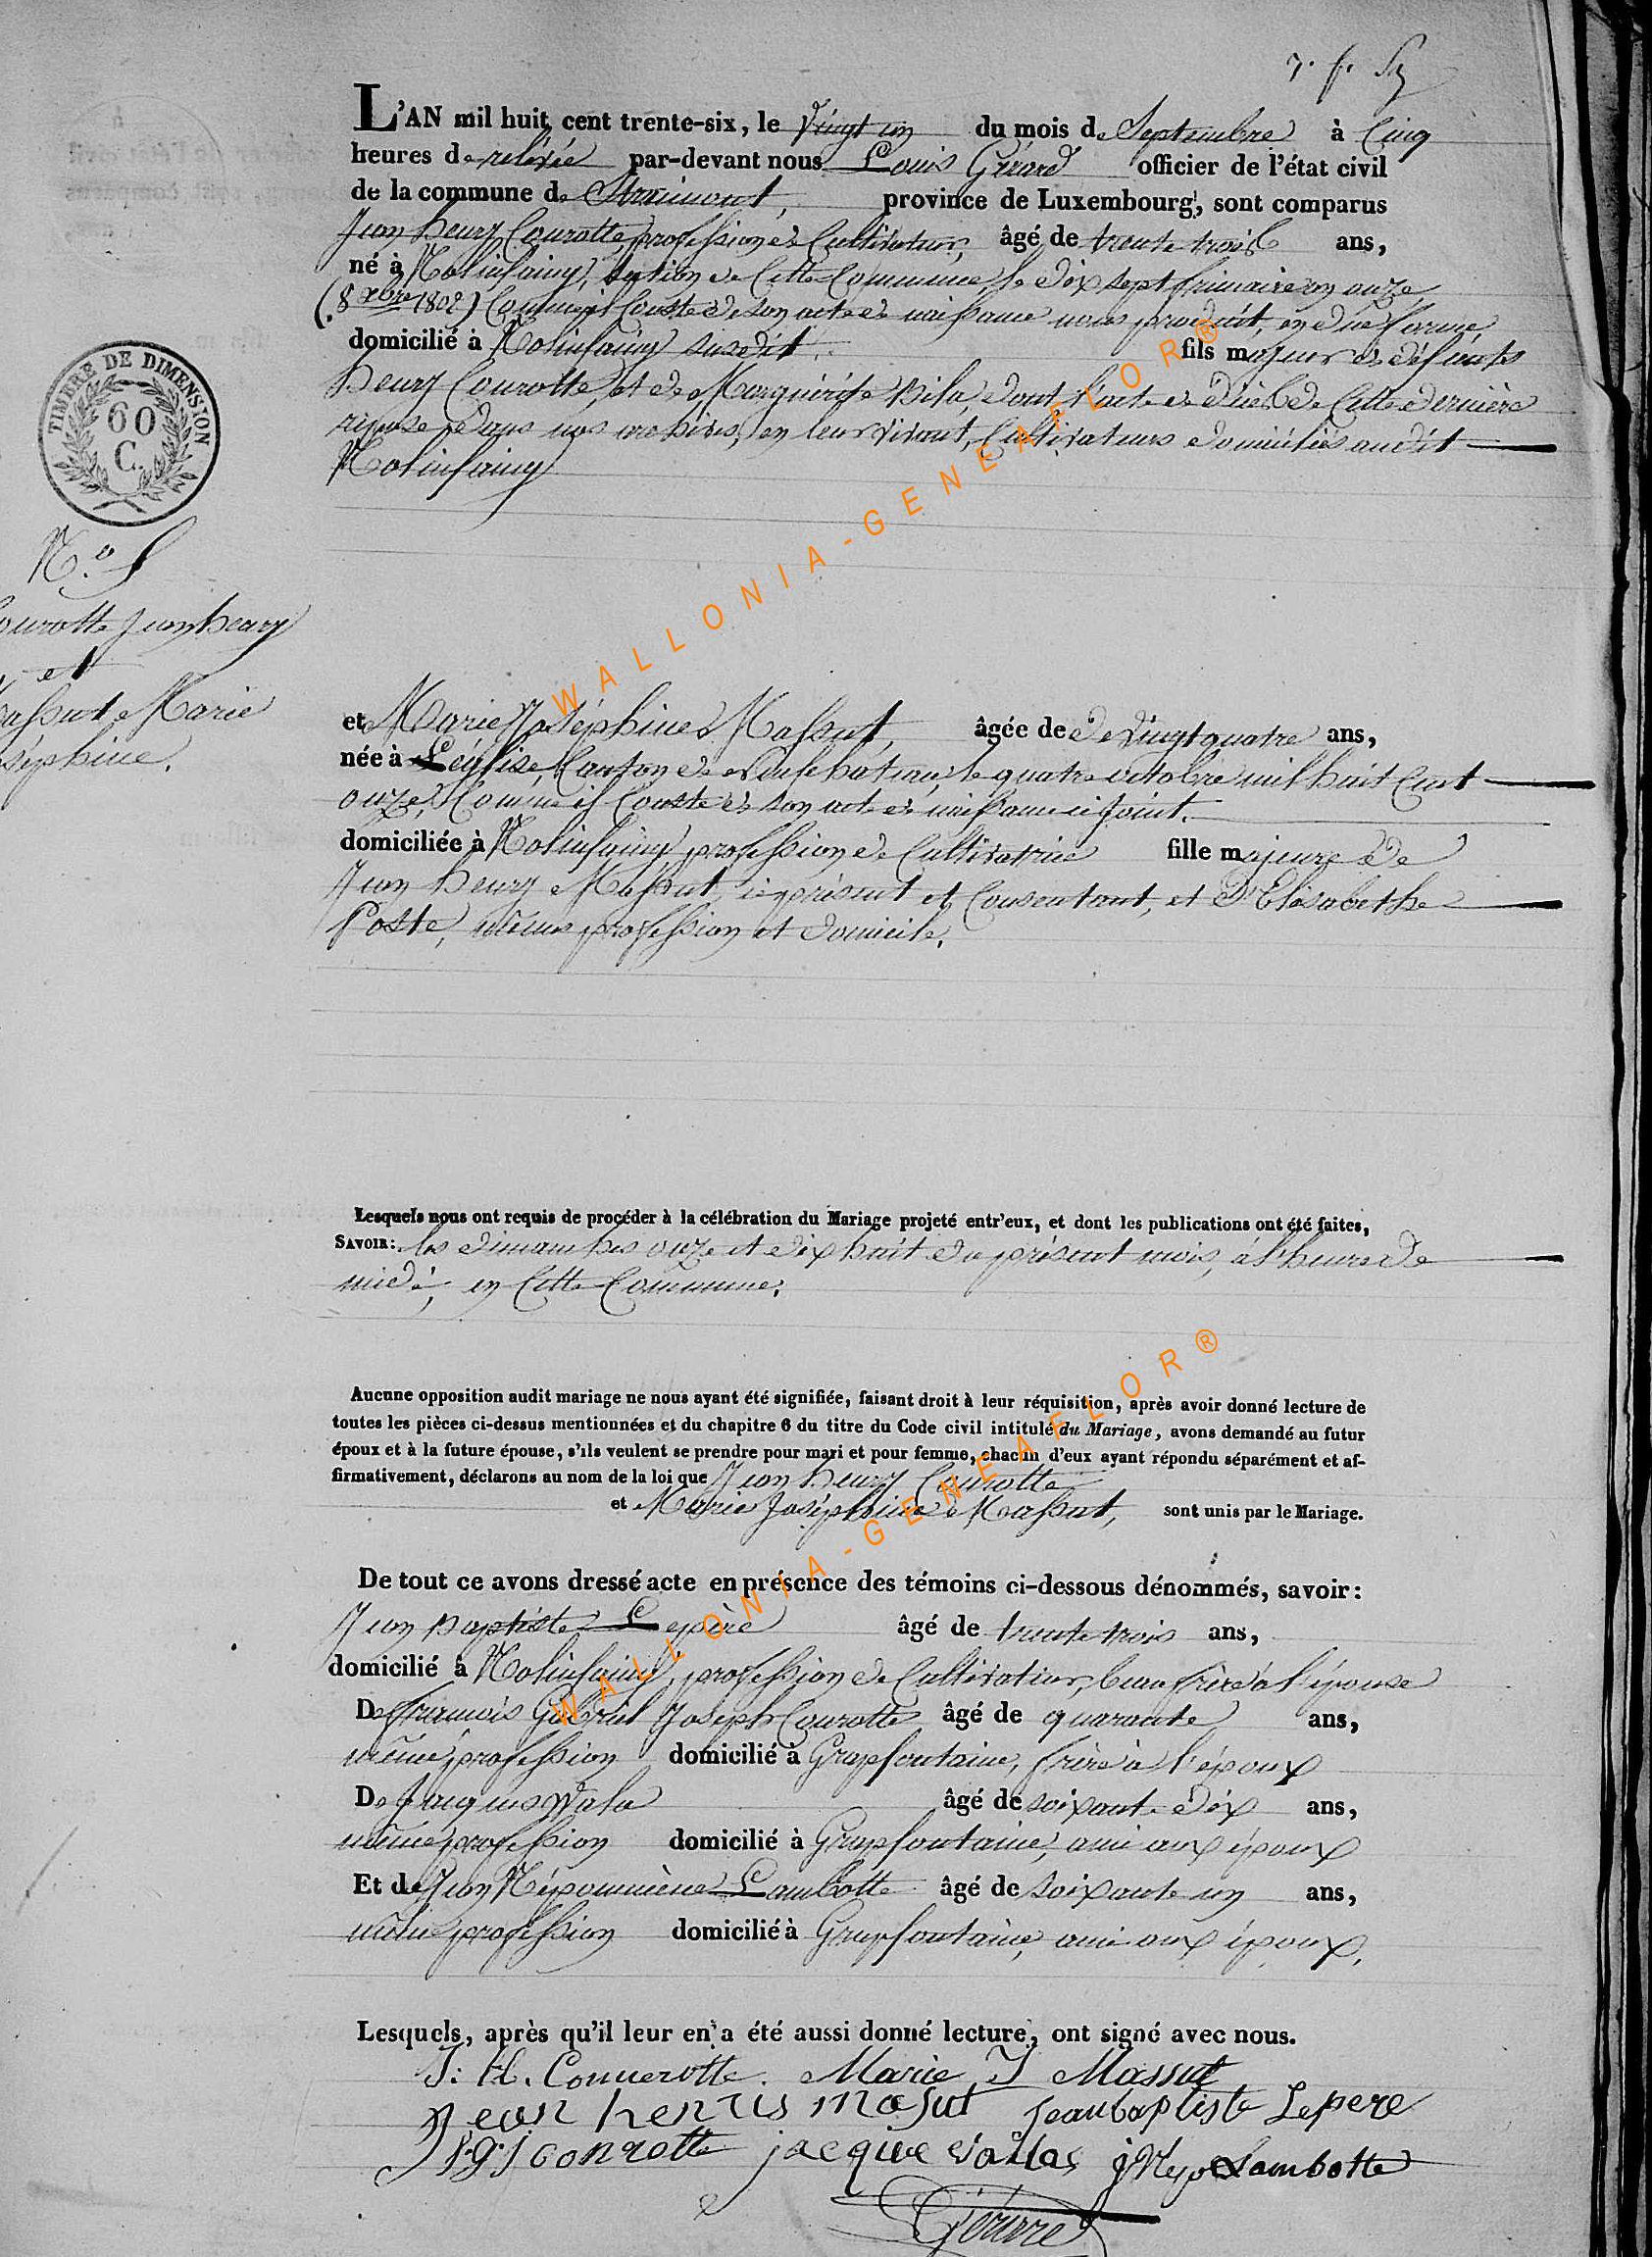 L'AN mil huit cent trente-six, le vingt un du mois de Septembre à Cinq
heures de relevée par-devant nous Louis Gérard officier de l'état civil
de la commune de Straimont, province de Luxembourg, sont comparus
Jean henry Courotte, profession de Cultivateur, âgé de trente trois ans,
né à Molinfaing, Section de Cette Commune, le dix sept frimaire an onze
(8 xbre 1802) Comme il Conste de son acte de naissance nous produit, en due forme,
domicilié à Molinfaing susdit, fils majeur de défunts
henry Courotte, et de Marguérite dont l'acte de décès de Cette dernière
repose dans nos archives, en leur vivant, Cultivateurs domiciliés audit
Molinfaing
TIMBRE DE DIMENSION
60
C.
N.º
ourotte Jean henry
et
assut Marie
séphine.
et Marie Joséphine Massut, âgée de de vingt quatre ans,
née à Léglise, Canton de Neufchateau, le quatre octobre mil huit Cent
onze, Comme il Conste de son acte de naissance ci joint.
domiciliée à Molinfaing profession de Cultivatrice fille majeure de
Jean henry Massut, ici présent et Consentant, et d'Elisabethe
Poste, même profession et domicile.
Lesquels nous ont requis de procéder à la célébration du Mariage projeté entr'eux, et dont les publications ont été faites,
SAVOIR: les dimanches onze et dix huit du présent mois, à l'heure de
midi, en Cette Commune.
Aucune opposition audit mariage ne nous ayant été signifiée, faisant droit à leur réquisition, après avoir donné lecture de
toutes les pièces ci-dessus mentionnées et du chapitre 6 du titre du Code civil intitulé du Mariage, avons demandé au futur
époux et à la future épouse, s'ils veulent se prendre pour mari et pour femme, chacun d'eux ayant répondu séparément et af-
firmativement, déclarons au nom de la loi que Jean henry Courotte
et Marie Joséphine Massut, sont unis par le Mariage.
De tout ce avons dressé acte en présence des témoins ci-dessous dénommés, savoir:
Jean Baptiste Lepère âgé de trente trois ans,
domicilié à Molinfaing, profession de Cultivateur, beau frère à l'épouse
De françois Gabriel Joseph Courotte âgé de quarante ans,
même profession domicilié à Grapfontaine, frère à l'époux
De Jacques Wala âgé de soixante dix ans,
même profession domicilié à Grapfontaine, ami aux époux
Et de Jean Népomucène Lambotte âgé de soixante un ans,
même profession domicilié à Grapfontaine, ami aux époux.
Lesquels, après qu'il leur en a été aussi donné lecture, ont signé avec nous.
J: H. Connerotte. Marie J Massut
Jean henris masut jeanbaptiste Lepere
f.g.j conrotte jacque j Nepo Lambotte
Gérard
WALLONIA-GENEAFLOR®
WALLONIA-GENEAFLOR®